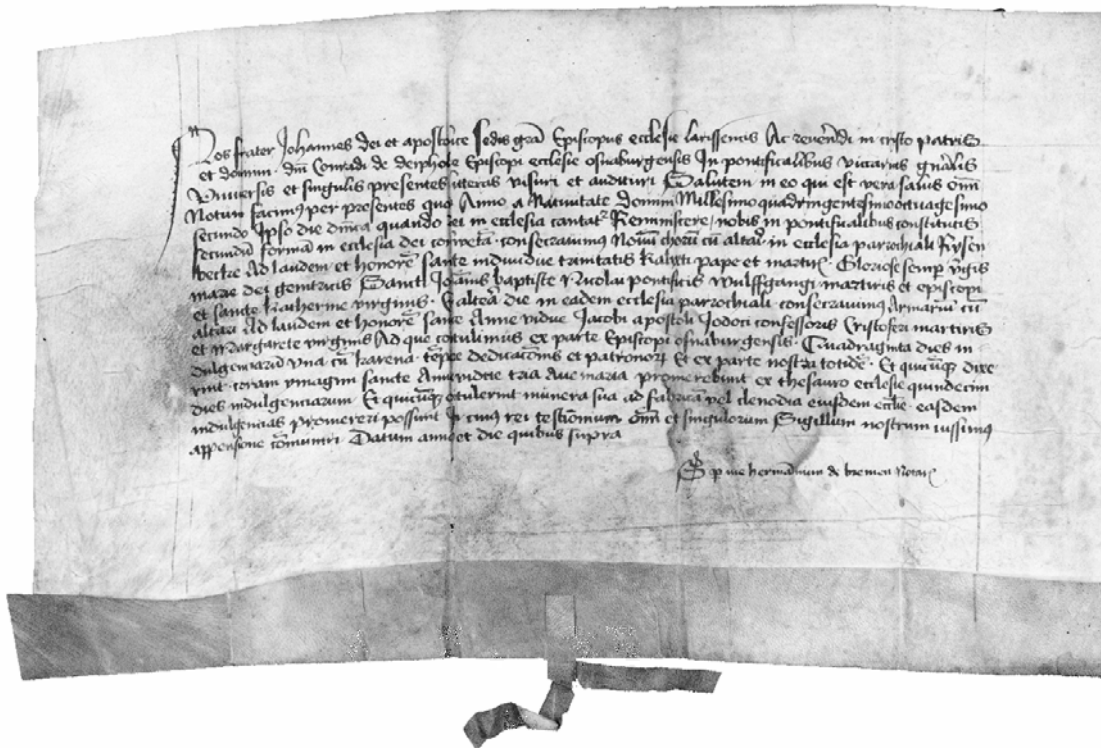 Nos frater Johannes dei et apostolice sedis gra Episcopus ecclesie larissencis Ac reverendi in cristo patris
et domini dni Conradi de depholt Episcopi ecclesie osnaburgensis In pontificalibus viccarius gnalis
Universis et singulis presentes literas visuri et audituri Salutem in eo qui est vera salus Omi
Notum facimus per presentes quod Anno a Nativitate domini Millesimo quadringentesimo octuagesimo
secundo Ipso die dnica quando dei in ecclesia cantatr Reminiscere nobis in pontificalibus constitutis
secundum formam in ecclesia dei consecravimus Novum chorum cu altari in ecclesia parrochiali Rysen
becke Ad laudem et honore sancte individue trinitatis Kalixti pape et martiris Gloriose semp vgis
marie dei genitricis Sancti Johanis baptiste Nicolai pontificis Wulffgangi martiris et episcopi
et sancte katherine virginis altera die in eadem ecclesia parrochiali consecravimus Armariu cu
altari Ad laudem et honore sancte Anne vidue Jacobi apostoli Jodoci confessoris Cristoferi martiris
et Margarete virginis Ad que cotulimus ex parte Episcopi osnaburgensis Quadraginta dies in
dulgenciaru una cu karena tempe dedicacionis et patronoru Et ex parte nostra totide Et quicuq dixe
rint coram ymagini sancte Anne tria Ave maria promerebunt ex thesauro ecclesie quindecim
dies indulgenciarum Et quicuq otulerint munera sua ad fabrica vel clenodia eiusdem ecclie easdem
indulgencias promereri possint In cuius rei testimonium omi et singulorum Sigillum nostrum iussimus
appensione comuniri Datum anno et die quibus supra
p me hermannum de bremen Notari